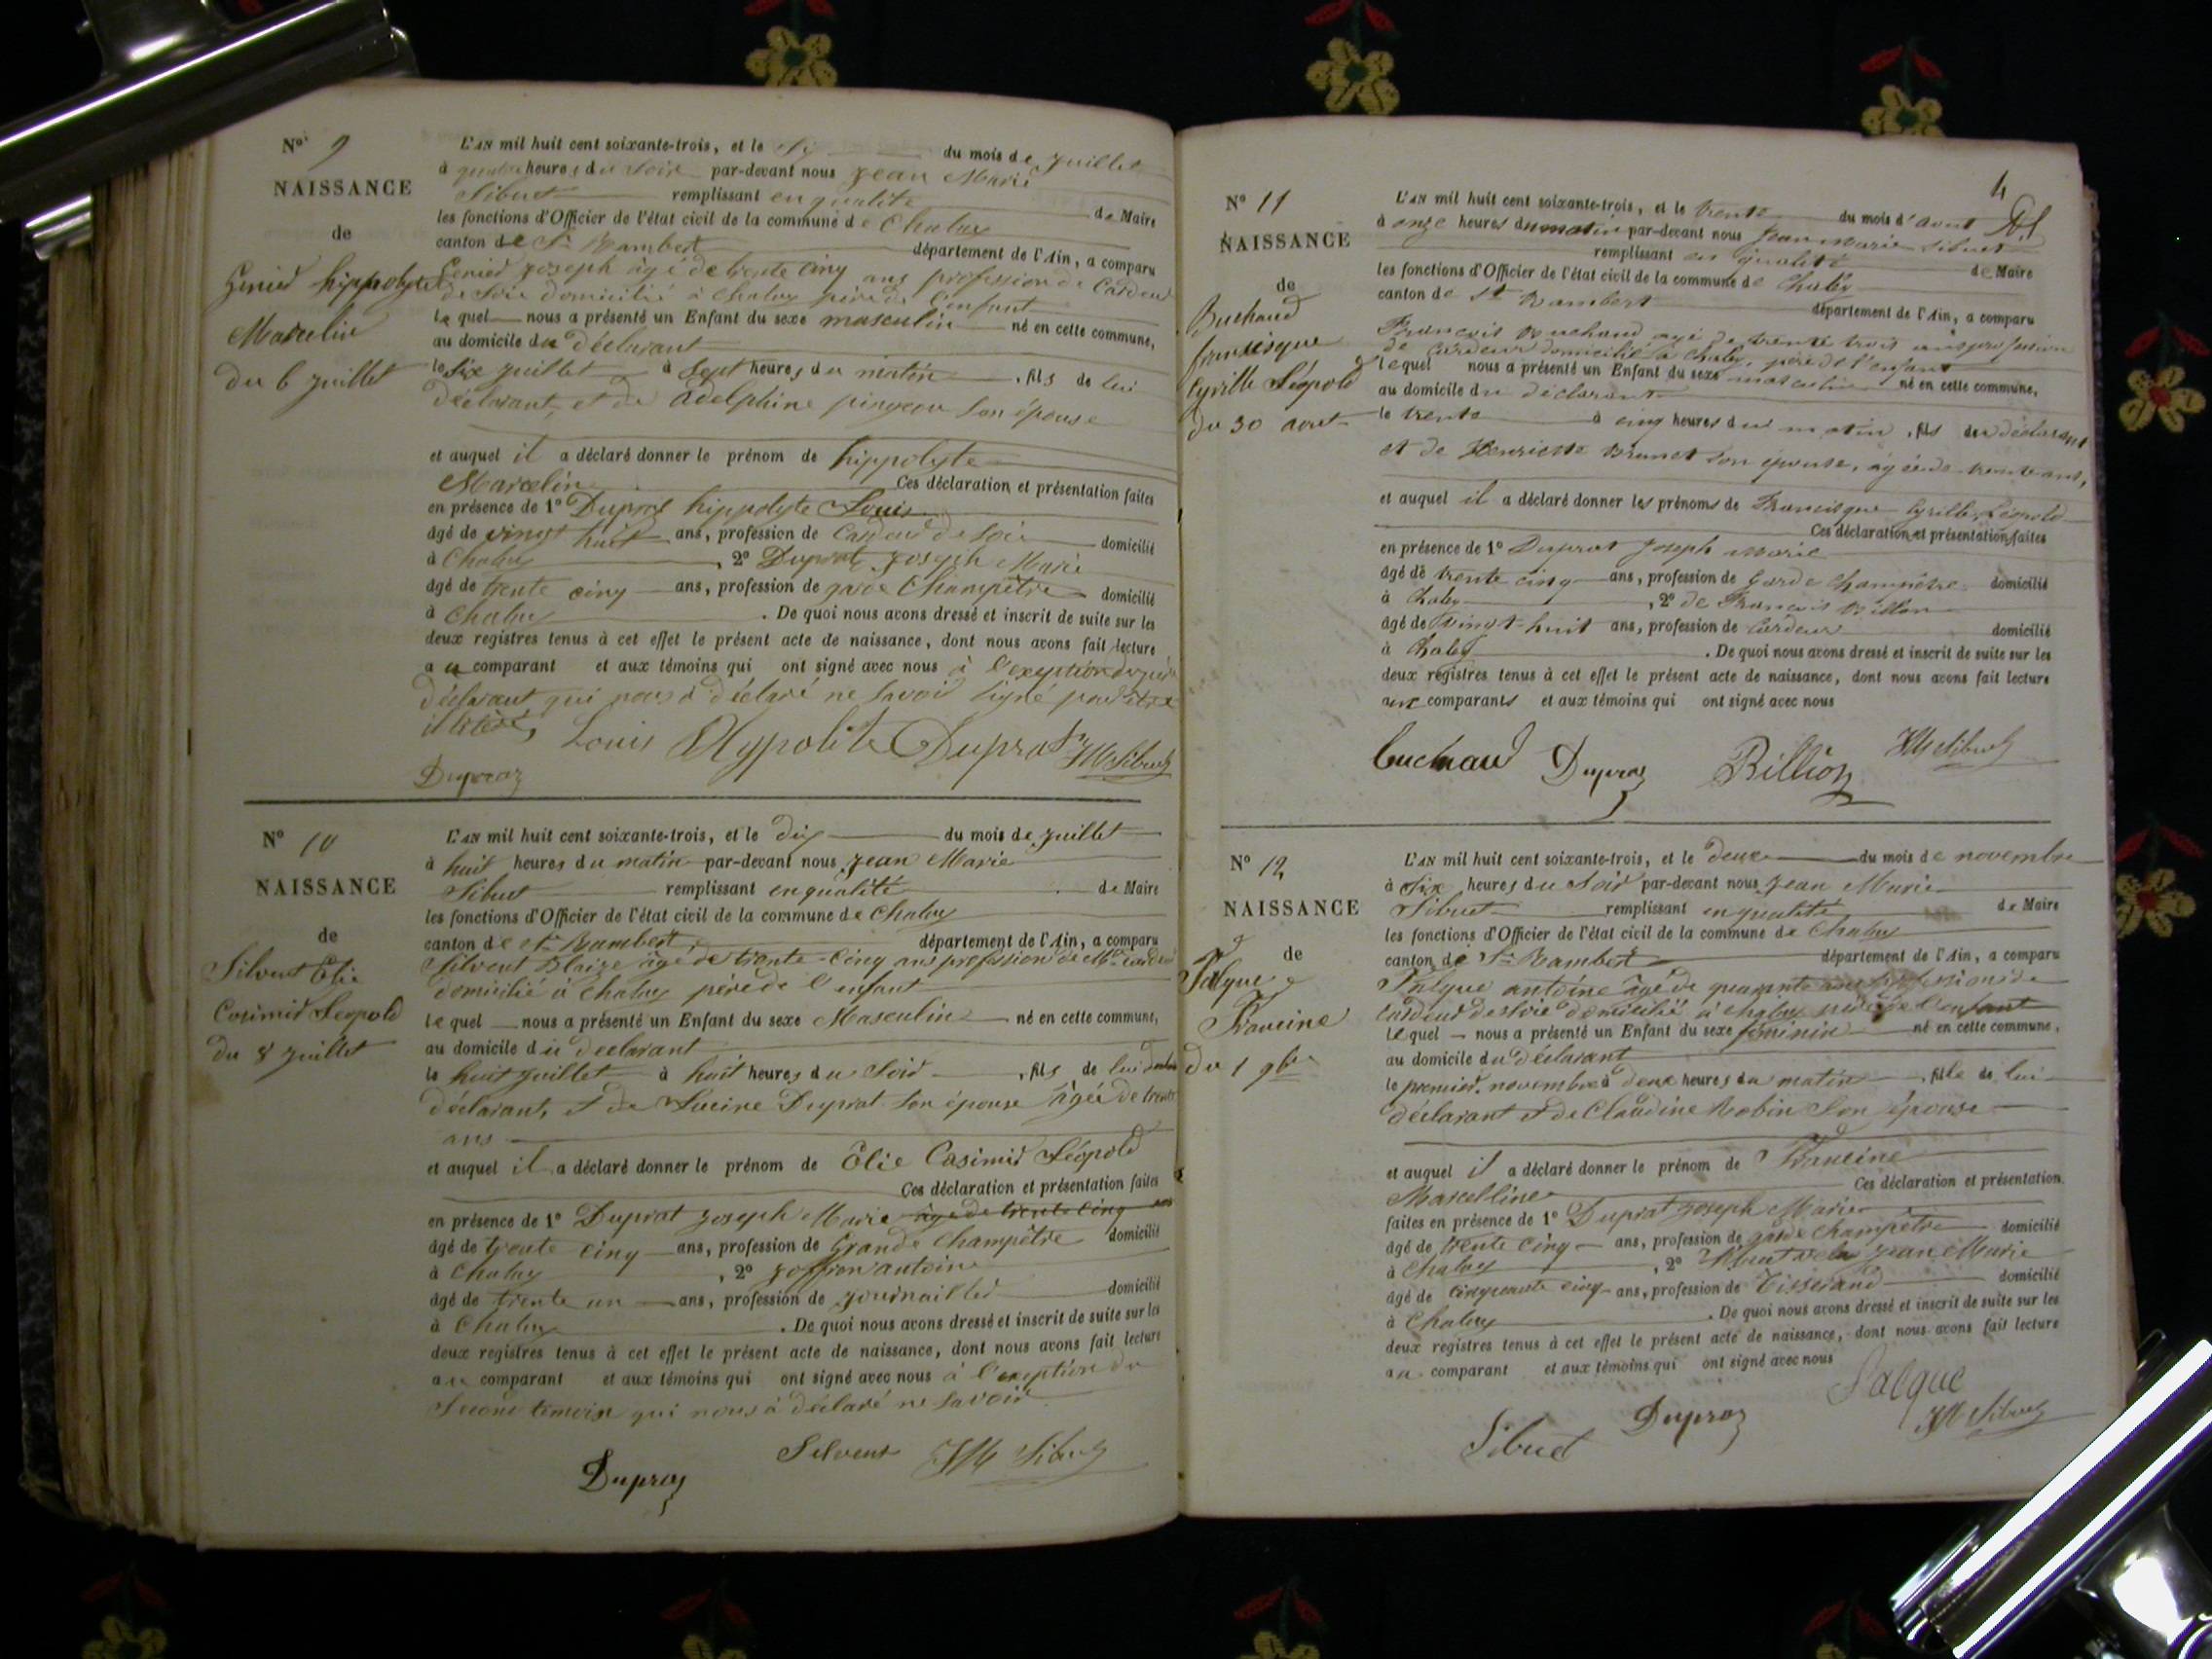 N° 9
NAISSANCE
de
Genier hippolyte
Marcelin
du 6 juillet
L'AN mil huit cent soixante-trois, et le Six du mois de juillet
à quatre heures du soir par-devant nous jean Marie
Sibuet remplissant en qualité de Maire
les fonctions d'Officier de l'état civil de la commune de Chaley
canton de St Rambert département de l'Ain, a comparu
joseph âgé de trente cinq ans profession de Cardeur
de Soie domicilié à Chaley père de l'enfant
lequel nous a présenté un Enfant du sexe masculin né en cette commune,
au domicile du déclarant
le Six juillet à Sept heures du matin, fils de lui
déclarant, et de adelphine pingeon son épouse
et auquel il a déclaré donner le prénom de hippolyte
Marcelin Ces déclaration et présentation faites
en présence de 1° Duprat hippolyte Louis
âgé de vingt huit ans, profession de Cardeur de Soie domicilié
à Chaley, 2° Duprat joseph Marie
âgé de trente cinq ans, profession de garde Champêtre domicilié
à Chaley. De quoi nous avons dressé et inscrit de suite sur les
deux registres tenus à cet effet le présent acte de naissance, dont nous avons fait lecture
au comparant et aux témoins qui ont signé avec nous à l'exeption du père
déclarant qui nous à déclaré ne savoir signé pour être
Louis Hypolite Duprat JM Sibuet
Dupraz
N° 10
NAISSANCE
de
Silvent Élie
Casimir Léopold
du 8 juillet
L'AN mil huit cent soixante-trois, et le dix du mois de juillet
à huit heures du matin par-devant nous jean Marie
Sibuet remplissant en qualité de Maire
les fonctions d'Officier de l'état civil de la commune de Chaley
canton de St Rambert, département de l'Ain, a comparu
Silvent Blaize âgé de trente-Cinq ans profession de
domicilié à Chaley père de l'enfant
lequel nous a présenté un Enfant du sexe Masculin né en cette commune,
au domicile du déclarant
le huit juillet à huit heures du Soir, fils de lui
déclarant, et de Lucine Duprat son épouse âgée de trente
ans
et auquel il a déclaré donner le prénom de Élie Casimir Léopold
Ces déclaration et présentation faites
en présence de 1° Duprat joseph Marie âgé de trente cinq ans
âgé de trente cinq ans, profession de Grande Champêtre domicilié
à Chaley, 2° antoine
âgé de trente un ans, profession de journaillier domicilié
à Chaley. De quoi nous avons dressé et inscrit de suite sur les
deux registres tenus à cet effet le présent acte de naissance, dont nous avons fait lecture
au comparant et aux témoins qui ont signé avec nous à l'exeption du
Second temoin qui nous à déclaré ne savoir
Dupraz Silvent JM Sibuet
4
N° 11
NAISSANCE
de
Buchaud
francisque
Cyrille Léopold
du 30 aout
L'AN mil huit cent soixante-trois, et le trente du mois d'aout
à onze heures du matin par-devant nous Jean Marie Sibuet
remplissant en qualité de Maire
les fonctions d'Officier de l'état civil de la commune de Chaley
canton de St Rambert département de l'Ain, a comparu
François Buchaud âgé de trente trois ans profession
de Cardeur domicilié à Chaley, père de l'enfant
lequel nous a présenté un Enfant du sexe masculin né en cette commune,
au domicile du déclarant
le trente à cinq heures du matin, fils du déclarant
et de Henriette Brunet son épouse, âgée de trente ans,
et auquel il a déclaré donner les prénoms de Francisque Cyrille, Léopold
Ces déclaration et présentation faites
en présence de 1° Duprat Joseph Marie
âgé de trente cinq ans, profession de Garde Champêtre domicilié
à Chaley, 2° de François Billon
âgé de vingt-huit ans, profession de Cardeur domicilié
à Chaley. De quoi nous avons dressé et inscrit de suite sur les
deux registres tenus à cet effet le présent acte de naissance, dont nous avons fait lecture
aux comparants et aux témoins qui ont signé avec nous
Buchaud Dupraz Billion JM Sibuet
N° 12
NAISSANCE
de
Falque
Francine
du 1 9bre
L'AN mil huit cent soixante-trois, et le deux du mois de novembre
à Six heures du Soir par-devant nous jean Marie
Sibuet remplissant en qualité de Maire
les fonctions d'Officier de l'état civil de la commune de Chaley
canton de St Rambert département de l'Ain, a comparu
Falque antoine âgé de quarante ans profession de
Cardeur de Soie domicilié à Chaley père de l'enfant
lequel nous a présenté un Enfant du sexe féminin né en cette commune,
au domicile du déclarant
le premier novembre à deux heures du matin, fille de lui
déclarant et de Claudine Robin son épouse
et auquel il a déclaré donner le prénom de Francine
Marcelline Ces déclaration et présentation
faites en présence de 1° Duprat joseph Marie
âgé de trente cinq ans, profession de garde Champêtre domicilié
à Chaley, 2° jean Marie
âgé de cinquante cinq ans, profession de Tisserand domicilié
à Chaley. De quoi nous avons dressé et inscrit de suite sur les
deux registres tenus à cet effet le présent acte de naissance, dont nous avons fait lecture
au comparant et aux témoins qui ont signé avec nous
Falque
Sibuet Dupraz JM Sibuet